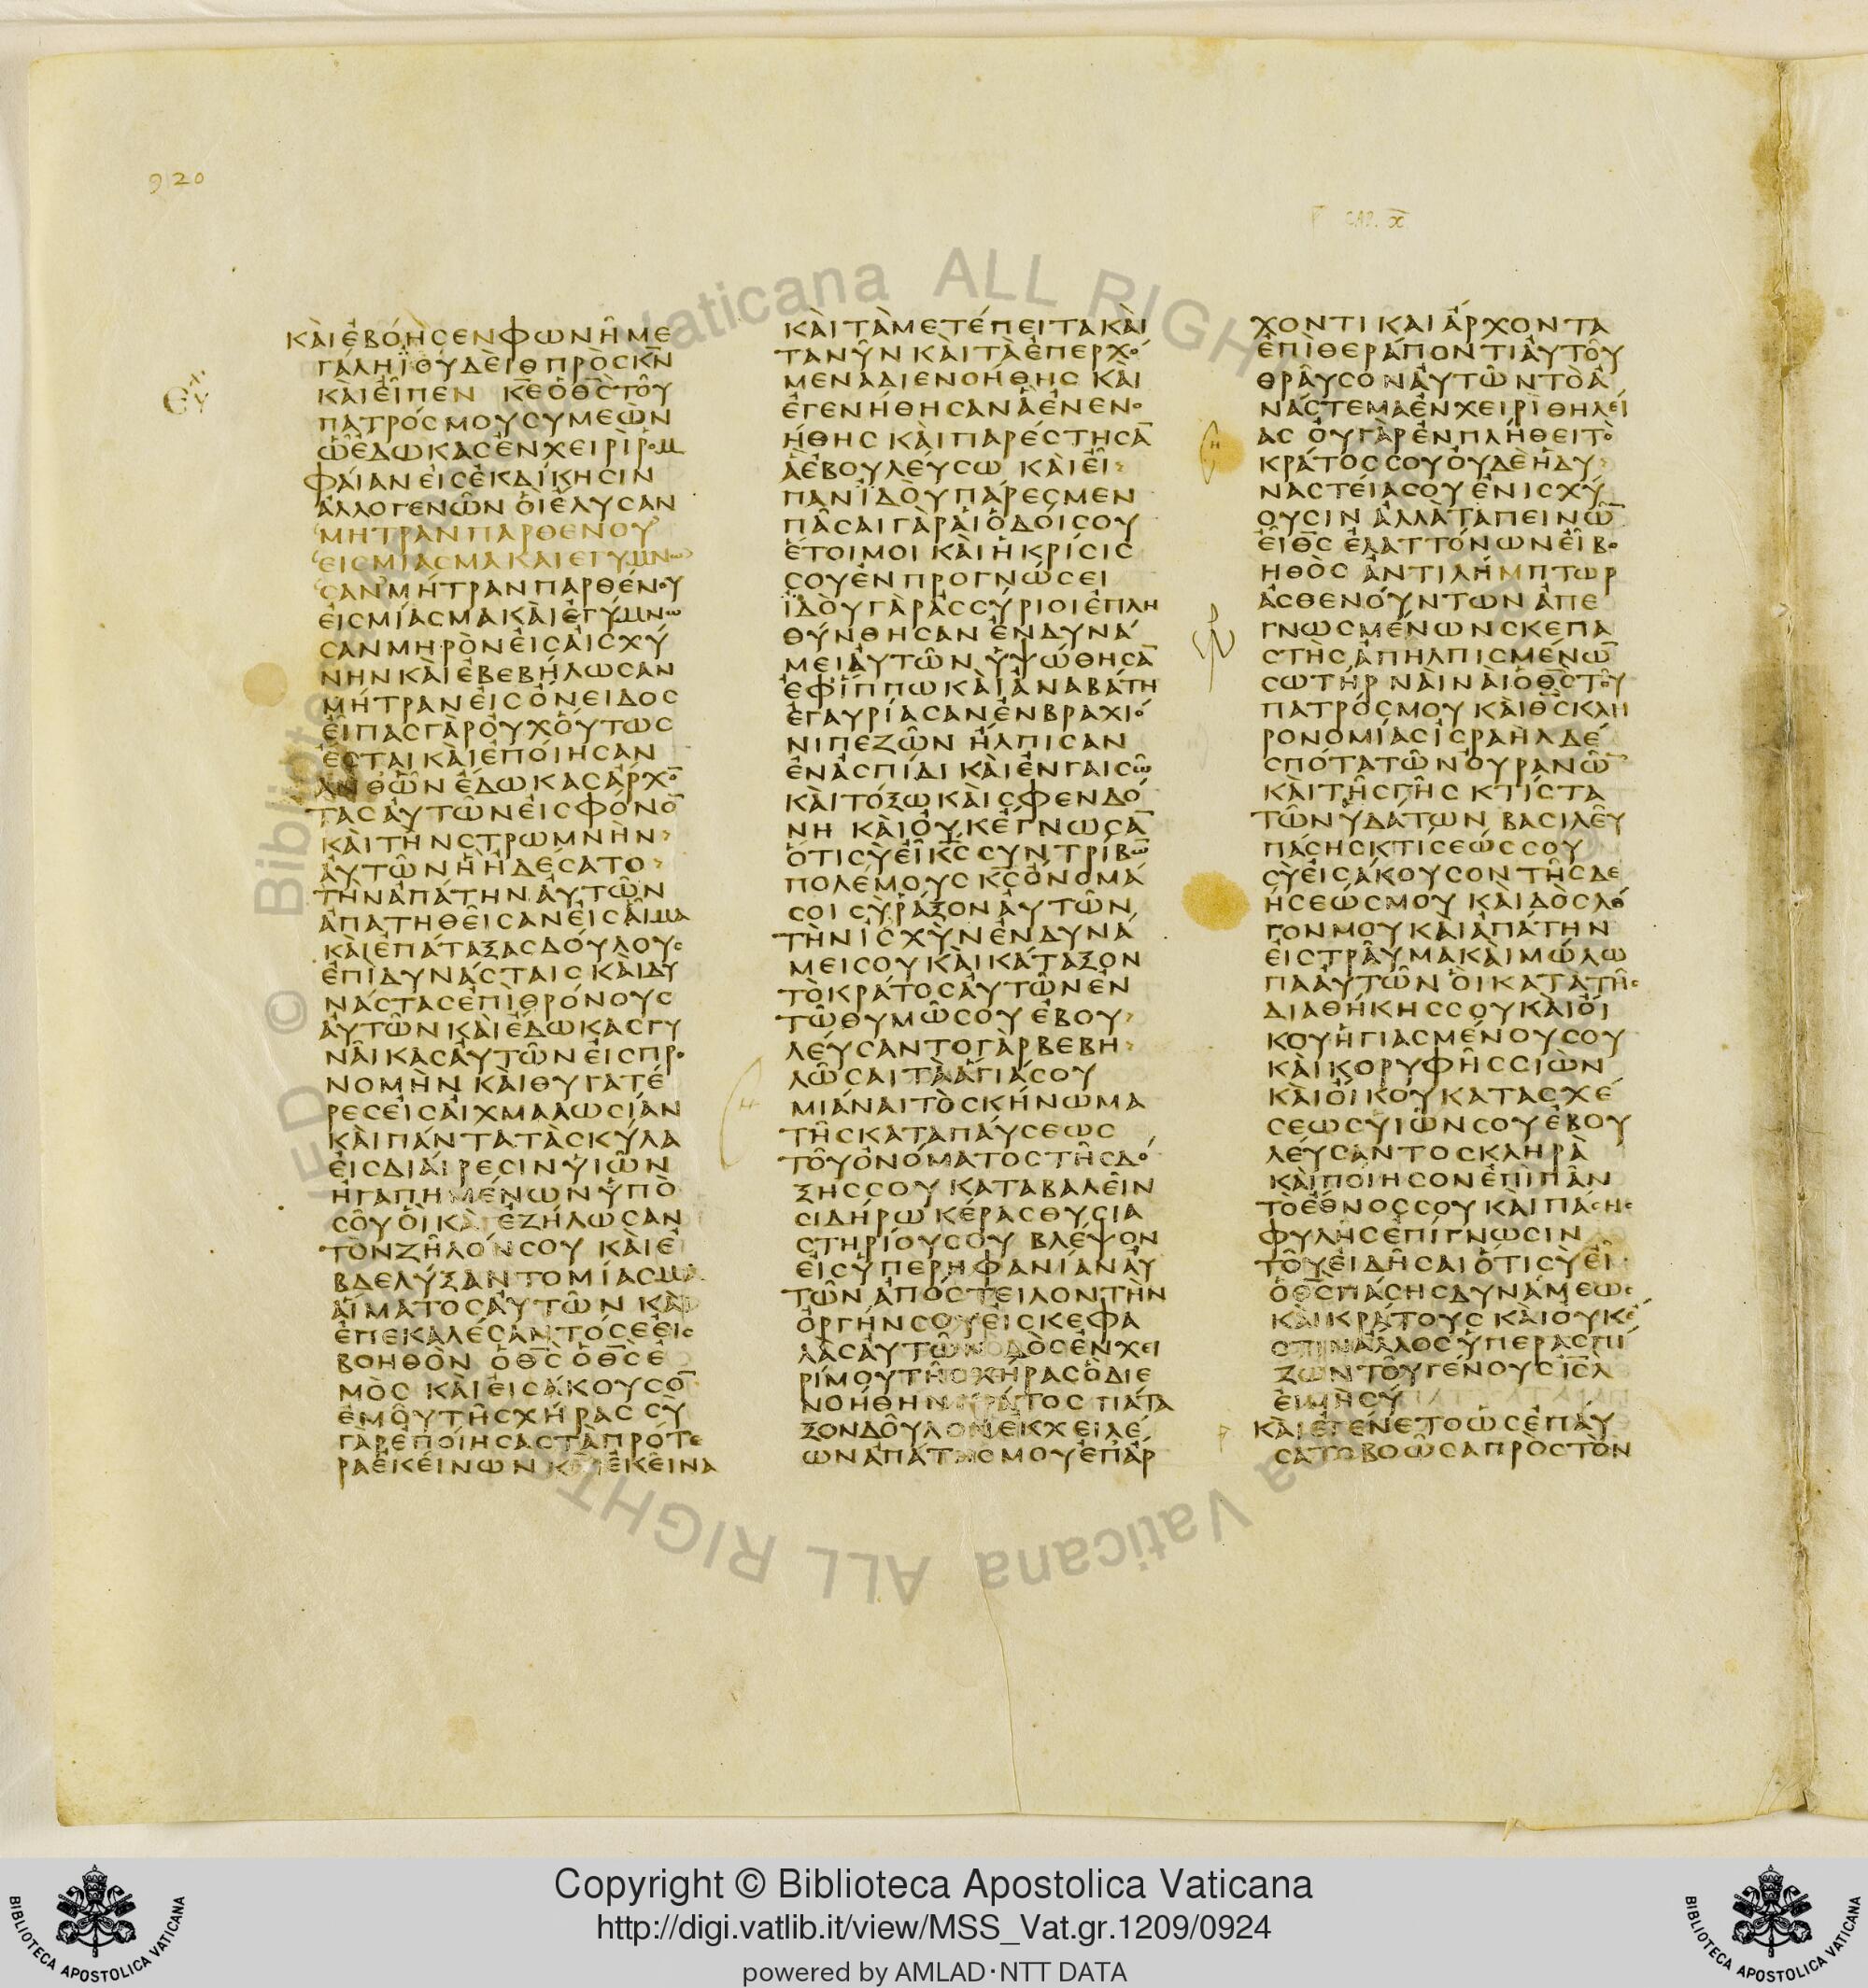 920
CAP. X
ΚΑΙΕΒΟΗСΕΝΦΩΝΗΜΕ
ΓΑΛΗΪΟΥΔΕΙΘΠΡΟСΚ̅Ν̅
ΚΑΙΕΙΠΕΝ Κ̅Ε̅ΟΘ̅С̅ΤΟΥ
ΠΑΤΡΟСΜΟΥСΥΜΕΩΝ
ΩΕΔΩΚΑСΕΝΧΕΙΡΙΡΟΜ
ΦΑΙΑΝΕΙСΕΚΔΙΚΗСΙΝ
ΑΛΛΟΓΕΝΩΝΟΙΕΛΥСΑΝ
ΜΗΤΡΑΝΠΑΡΘΕΝΟΥ
ΕΙСΜΙΑСΜΑΚΑΙΕΓΥΜΝΩ
СΑΝΜΗΤΡΑΝΠΑΡΘΕΝΟΥ
ΕΙСΜΙΑСΜΑΚΑΙΕΓΥΜΝΩ
СΑΝΜΗΡΟΝΕΙСΑΙСΧΥ
ΝΗΝΚΑΙΕΒΕΒΗΛΩСΑΝ
ΜΗΤΡΑΝΕΙСΟΝΕΙΔΟС
ΕΙΠΑСΓΑΡΟΥΧΟΥΤΩС
ΕСΤΑΙΚΑΙΕΠΟΙΗСΑΝ
ΑΝΘΩΝΕΔΩΚΑСΑΡΧΟ̅
ΤΑСΑΥΤΩΝΕΙСΦΟΝΟ̅
ΚΑΙΤΗΝСΤΡΩΜΝΗΝ
ΑΥΤΩΝΗΗΔΕСΑΤΟ
ΤΗΝΑΠΑΤΗΝΑΥΤΩΝ
ΑΠΑΤΗΘΕΙСΑΝΕΙСΑΙΜΑ
ΚΑΙΕΠΑΤΑΞΑСΔΟΥΛΟΥС
ΕΠΙΔΥΝΑСΤΑΙСΚΑΙΔΥ
ΝΑСΤΑСΕΠΙΘΡΟΝΟΥС
ΑΥΤΩΝΚΑΙΕΔΩΚΑСΓΥ
ΝΑΙΚΑСΑΥΤΩΝΕΙСΠΡΟ
ΝΟΜΗΝ ΚΑΙΘΥΓΑΤΕ
ΡΕСΕΙСΑΙΧΜΑΛΩСΙΑΝ
ΚΑΙΠΑΝΤΑΤΑСΚΥΛΑ
ΕΙСΔΙΑΙΡΕСΙΝΥΙΩΝ
ΗΓΑΠΗΜΕΝΩΝΥΠΟ
СΟΥΟΙΚΑΙΕΖΗΛΩСΑΝ
ΤΟΝΖΗΛΟΝСΟΥ ΚΑΙΕ
ΒΔΕΛΥΞΑΝΤΟΜΙΑСΜΑ
ΑΙΜΑΤΟСΑΥΤΩΝ ΚΑΙ
ΕΠΕΚΑΛΕСΑΝΤΟСΕΕΙС
ΒΟΗΘΟΝ ΟΘ̅С̅ΟΘ̅С̅Ε
ΜΟС ΚΑΙΕΙСΑΚΟΥСΟ̅
ΕΜΟΥΤΗСΧΗΡΑС СΥ
ΓΑΡΕΠΟΙΗСΑСΤΑΠΡΟΤΕ
ΡΑΕΚΕΙΝΩΝ ΚΑΙΕΚΕΙΝΑ
ΚΑΙΤΑΜΕΤΕΠΕΙΤΑΚΑΙ
ΤΑΝΥΝ ΚΑΙΤΑΕΠΕΡΧΟ
ΜΕΝΑΔΙΕΝΟΗΘΗС ΚΑΙ
ΕΓΕΝΗΘΗСΑΝΑΕΝΕΝΟ
ΗΘΗС ΚΑΙΠΑΡΕСΤΗСΑ̅
ΑΕΒΟΥΛΕΥСΩ ΚΑΙΕΙ
ΠΑΝΪΔΟΥΠΑΡΕСΜΕΝ
ΠΑСΑΙΓΑΡΑΙΟΔΟΙСΟΥ
ΕΤΟΙΜΟΙ ΚΑΙΗΚΡΙСΙС
СΟΥΕΝΠΡΟΓΝΩСΕΙ
ΪΔΟΥΓΑΡΑССΥΡΙΟΙΕΠΛΗ
ΘΥΝΘΗСΑΝ ΕΝΔΥΝΑ
ΜΕΙΑΥΤΩΝ ΥΨΩΘΗСΑ̅
ΕΦΙΠΠΩΚΑΙΑΝΑΒΑΤΗ
ΕΓΑΥΡΙΑСΑΝΕΝΒΡΑΧΙΟ
ΝΙΠΕΖΩΝ ΗΛΠΙСΑΝ
ΕΝΑСΠΙΔΙ ΚΑΙΕΝΓΑΙСΩ
ΚΑΙΤΟΞΩΚΑΙСΦΕΝΔΟ
ΝΗ ΚΑΙΟΥΚΕΓΝΩСΑ̅
ΟΤΙСΥΕΙΚ̅С̅СΥΝΤΡΙΒΩ̅
ΠΟΛΕΜΟΥСΚ̅С̅ΟΝΟΜΑ
СΟΙ СΥΡΑΞΟΝΑΥΤΩΝ
ΤΗΝΙСΧΥΝΕΝΔΥΝΑ
ΜΕΙСΟΥΚΑΙΚΑΤΑΞΟΝ
ΤΟΚΡΑΤΟСΑΥΤΩΝΕΝ
ΤΩΘΥΜΩСΟΥΕΒΟΥ
ΛΕΥСΑΝΤΟΓΑΡΒΕΒΗ
ΛΩСΑΙΤΑΑΓΙΑСΟΥ
ΜΙΑΝΑΙΤΟСΚΗΝΩΜΑ
ΤΗСΚΑΤΑΠΑΥСΕΩС
ΤΟΥΟΝΟΜΑΤΟСΤΗСΔΟ
ΞΗССΟΥ ΚΑΤΑΒΑΛΕΙΝ
СΙΔΗΡΩ ΚΕΡΑСΘΥСΙΑ
СΤΗΡΙΟΥСΟΥ ΒΛΕΨΟΝ
ΕΙСΥΠΕΡΗΦΑΝΙΑΝΑΥ
ΤΩΝ ΑΠΟСΤΕΙΛΟΝΤΗΝ
ΟΡΓΗΝСΟΥΕΙСΚΕΦΑ
ΛΑСΑΥΤΩΝ ΔΟСΕΝΧΕΙ
ΡΙΜΟΥΤΗСΧΗΡΑСΟΔΙΕ
ΝΟΗΘΗΝΚΡΑΤΟС ΠΑΤΑ
ΞΟΝΔΟΥΛΟΝΕΚΧΕΙΛΕ
ΩΝΑΠΑΤΗСΜΟΥΕΠΑΡ
ΧΟΝΤΙ ΚΑΙ ΑΡΧΟΝΤΑ
ΕΠΙΘΕΡΑΠΟΝΤΙΑΥΤΟΥ
ΘΡΑΥСΟΝΑΥΤΩΝΤΟΑ
ΝΑСΤΕΜΑΕΝΧΕΙΡΙΘΗΛΕΙ
ΑС ΟΥΓΑΡΕΝΠΛΗΘΕΙΤΟ
ΚΡΑΤΟССΟΥΟΥΔΕΗΔΥ
ΝΑСΤΕΙΑСΟΥ ΕΝΙСΧΥ
ΟΥСΙΝ ΑΛΛΑΤΑΠΕΙΝΩ̅
ΕΙΘ̅С̅ ΕΛΑΤΤΟΝΩΝΕΙΒΟ
ΗΘΟС ΑΝΤΙΛΗΜΠΤΩΡ
ΑСΘΕΝΟΥΝΤΩΝ ΑΠΕ
ΓΝΩСΜΕΝΩΝСΚΕΠΑ
СΤΗСΑΠΗΛΠΙСΜΕΝΩ̅
СΩΤΗΡ ΝΑΙΝΑΙΟΘ̅С̅ΤΟΥ
ΠΑΤΡΟСΜΟΥ ΚΑΙΘ̅С̅ΚΛΗ
ΡΟΝΟΜΙΑСΙСΡΑΗΛΔΕ
СΠΟΤΑΤΩΝΟΥΡΑΝΩ̅
ΚΑΙΤΗСΓΗС ΚΤΙСΤΑ
ΤΩΝΥΔΑΤΩΝ ΒΑСΙΛΕΥ
ΠΑСΗСΚΤΙСΕΩССΟΥ
СΥΕΙСΑΚΟΥСΟΝΤΗСΔΕ
ΗСΕΩСΜΟΥ ΚΑΙΔΟСΛΟ
ΓΟΝΜΟΥΚΑΙΑΠΑΤΗΝ
ΕΙСΤΡΑΥΜΑΚΑΙΜΩΛΩ
ΠΑΑΥΤΩΝ ΟΙΚΑΤΑΤΗС
ΔΙΑΘΗΚΗССΟΥΚΑΙΟΙ
ΚΟΥΗΓΙΑСΜΕΝΟΥСΟΥ
ΚΑΙΚΟΡΥΦΗССΙΩΝ
ΚΑΙΟΙΚΟΥΚΑΤΑСΧΕ
СΕΩСΥΙΩΝСΟΥΕΒΟΥ
ΛΕΥСΑΝΤΟСΚΛΗΡΑ
ΚΑΙΠΟΙΗСΟΝΕΠΙΠΑΝ
ΤΟΕΘΝΟССΟΥ ΚΑΙΠΑСΗС
ΦΥΛΗСΕΠΙΓΝΩСΙΝ
ΤΟΥΕΙΔΗСΑΙΟΤΙСΥΕΙ
ΟΘ̅С̅ΠΑСΗСΔΥΝΑΜΕΩС
ΚΑΙΚΡΑΤΟΥС ΚΑΙΟΥΚΕ
СΤΙΝΑΛΛΟСΥΠΕΡΑСΠΙ
ΖΩΝΤΟΥΓΕΝΟΥСΙ̅С̅Λ̅
ΕΙΜΗСΥ
ΚΑΙΕΓΕΝΕΤΟΩСΕΠΑΥ
СΑΤΟΒΟΩСΑΠΡΟСΤΟΝ
Copyright © Biblioteca Apostolica Vaticana
http://digi.vatlib.it/view/MSS_Vat.gr.1209/0924
powered by AMLAD·NTT DATA
BIBLIOTECA APOSTOLICA VATICANA
BIBLIOTECA APOSTOLICA VATICANA